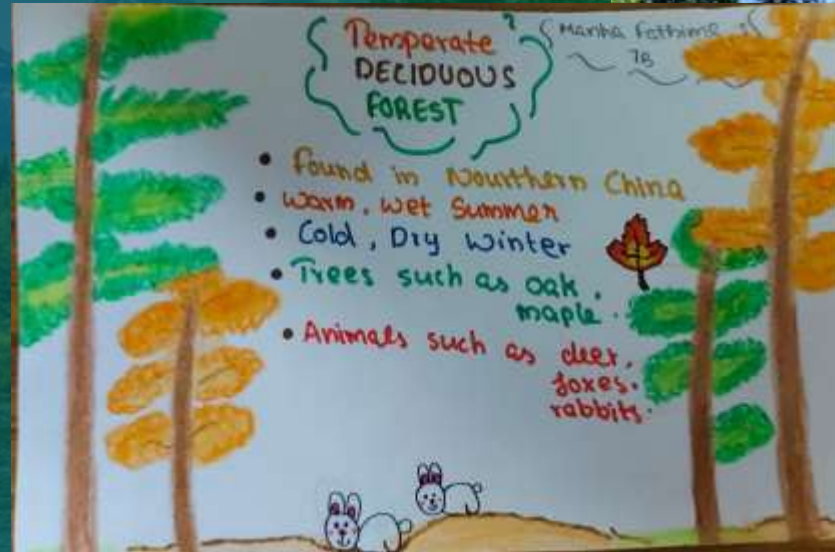 Temperate
DECIDUOUS
FOREST
Manha Fathima
7B
• Found in Nourthern China
• Warm, Wet Summer
• Cold, Dry Winter
• Trees such as oak,
maple.
• Animals such as deer,
foxes.
rabbits.